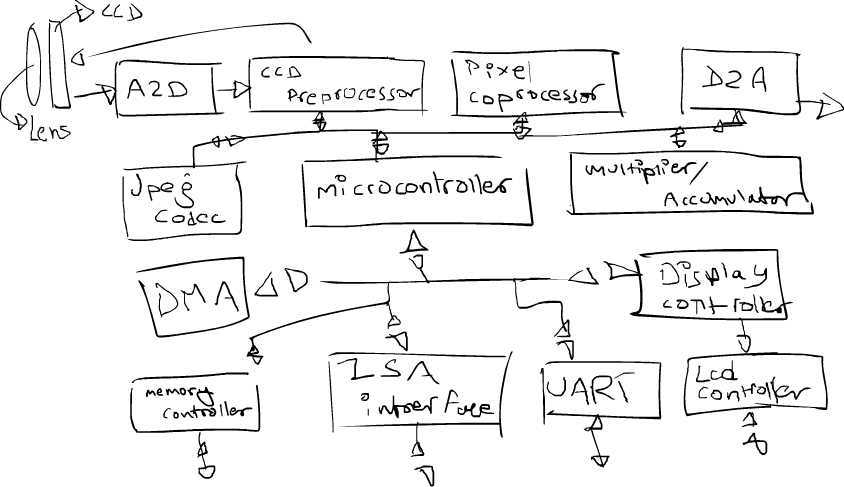 CCD
Lens
A2D
CCD
Preprocessor
Pixel
coprocessor
D2A
Jpeg
codec
microcontroller
multiplier/
Accumulator
DMA
Display
controller
memory
controller
ISA
interface
UART
Lcd
controller